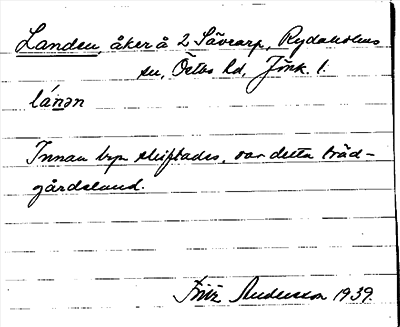 Landen, åker å 2 Sävsarp, Rydaholms
sn, Östbo hd, Jönk. l.
lánən
Innan byn skiftades, var detta träd-
gårdsland.
Fritz Andersson 1939.